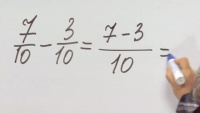 7/10 - 3/10 = (7-3)/10 =